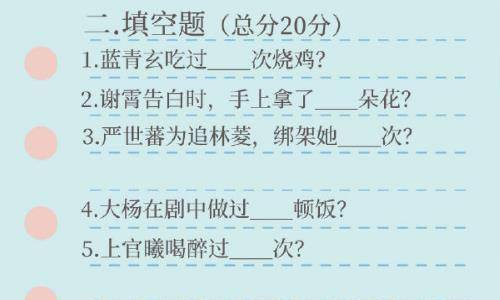 二.填空题（总分20分）
1.蓝青玄吃过____次烧鸡？
2.谢霄告白时，手上拿了____朵花？
3.严世蕃为追林菱，绑架她____次？
4.大杨在剧中做过____顿饭？
5.上官曦喝醉过____次？